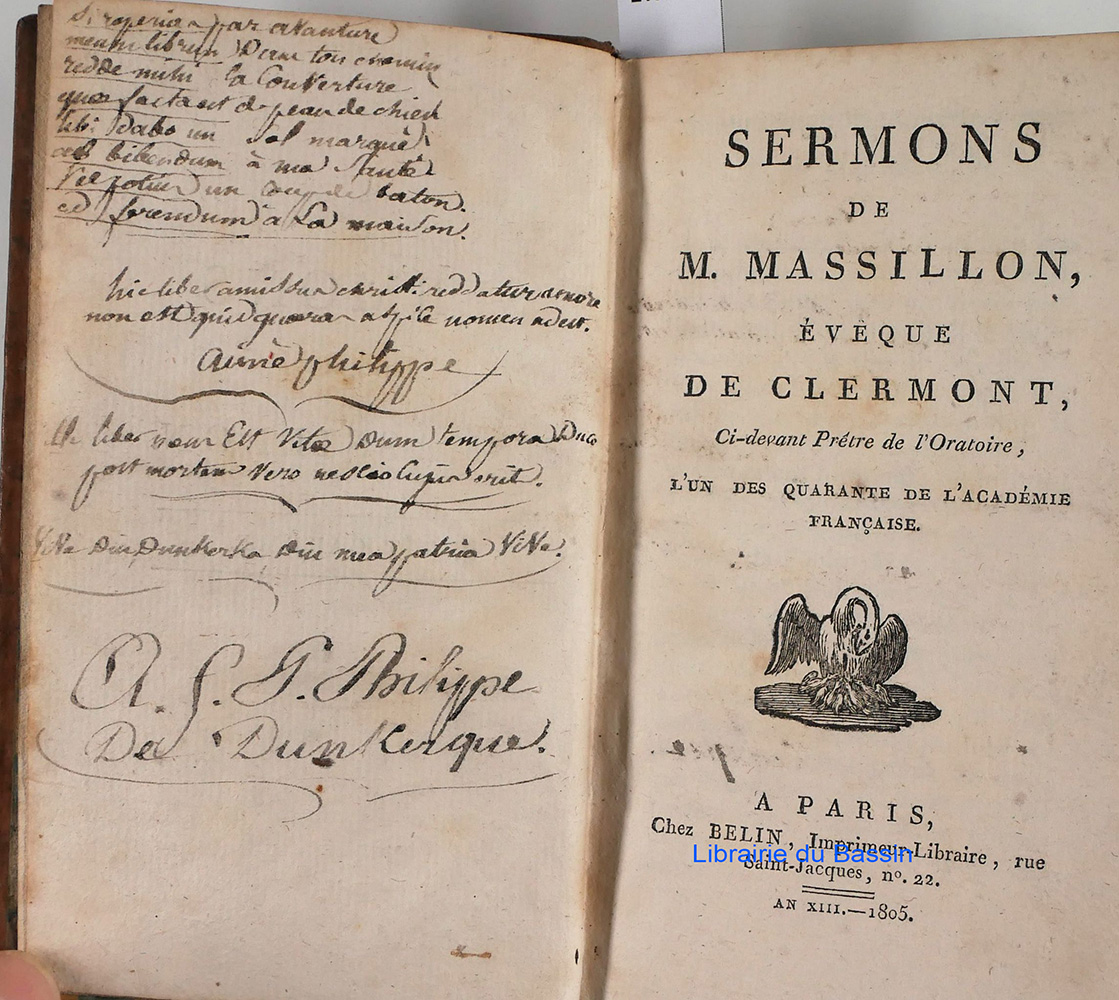 Si reperias par avanture
meum librum Dans ton chemin
redde mihi la Couverture
quæ facta est de peau de chien
tibi Dabo un Sol marqué
ad bibendum à ma Santé
Vel potius un coup de baton.
ad ferendum à La maison.
hic liber amissus christi reddatur amore
non est quid quæras aspice nomen adest.
aimé philippe
liber meus Est Vitæ Dum tempora Duco
post mortem Vero nescio Cujus erit.
ViVa Diu Dunkerka Diu mea patria ViVa.
A. f. G. Philippe
De Dunkerque.
SERMONS
DE
M. MASSILLON,
ÉVÊQUE
DE CLERMONT,
Ci-devant Prêtre de l'Oratoire,
L'UN DES QUARANTE DE L'ACADÉMIE
FRANÇAISE.
A PARIS,
Chez BELIN, Imprimeur-Libraire, rue
Saint-Jacques, n°. 22.
AN XIII.—1805.
Librairie du Bassin